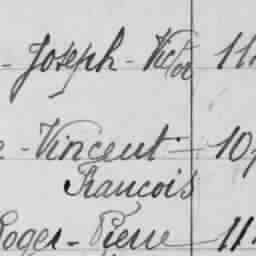 - Joseph - Victor 11
- Vincent - 10
François
Roger - Pierre - 11